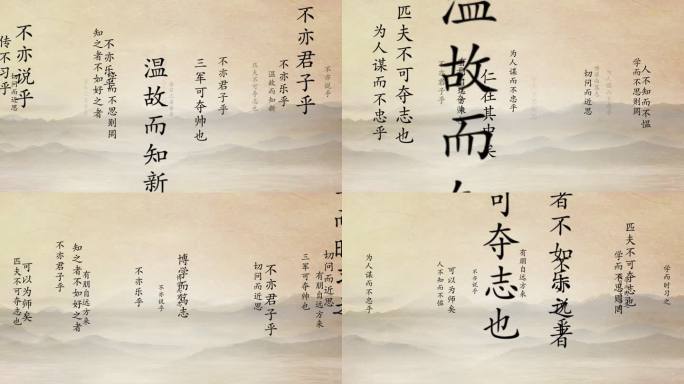 不亦说乎
传不习乎
切问而近思
知之者不如好之者
不亦乐乎
学而不思则罔
温故而知新
三军可夺帅也
不亦君子乎
匹夫不可夺志也
温故而知新
不亦乐乎
不亦君子乎
不亦说乎
为人谋而不忠乎
匹夫不可夺志也
温故而
仁在其中矣
为人谋而不忠乎
切问而近思
学而不思则罔
人不知而不愠
匹夫不可夺志也
可以为师矣
不亦君子乎
知之者不如好之者
有朋自远方来
不亦乐乎
不亦说乎
博学而笃志
切问而近思
不亦君子乎
三军可夺帅也
有朋自远方来
切问而近思
而时习之
为人谋而不忠乎
人不知而不愠
可以为师矣
不亦说乎
可夺志也
有朋自远方来
者不如
学而不思则罔
匹夫不可夺志也
学而时习之